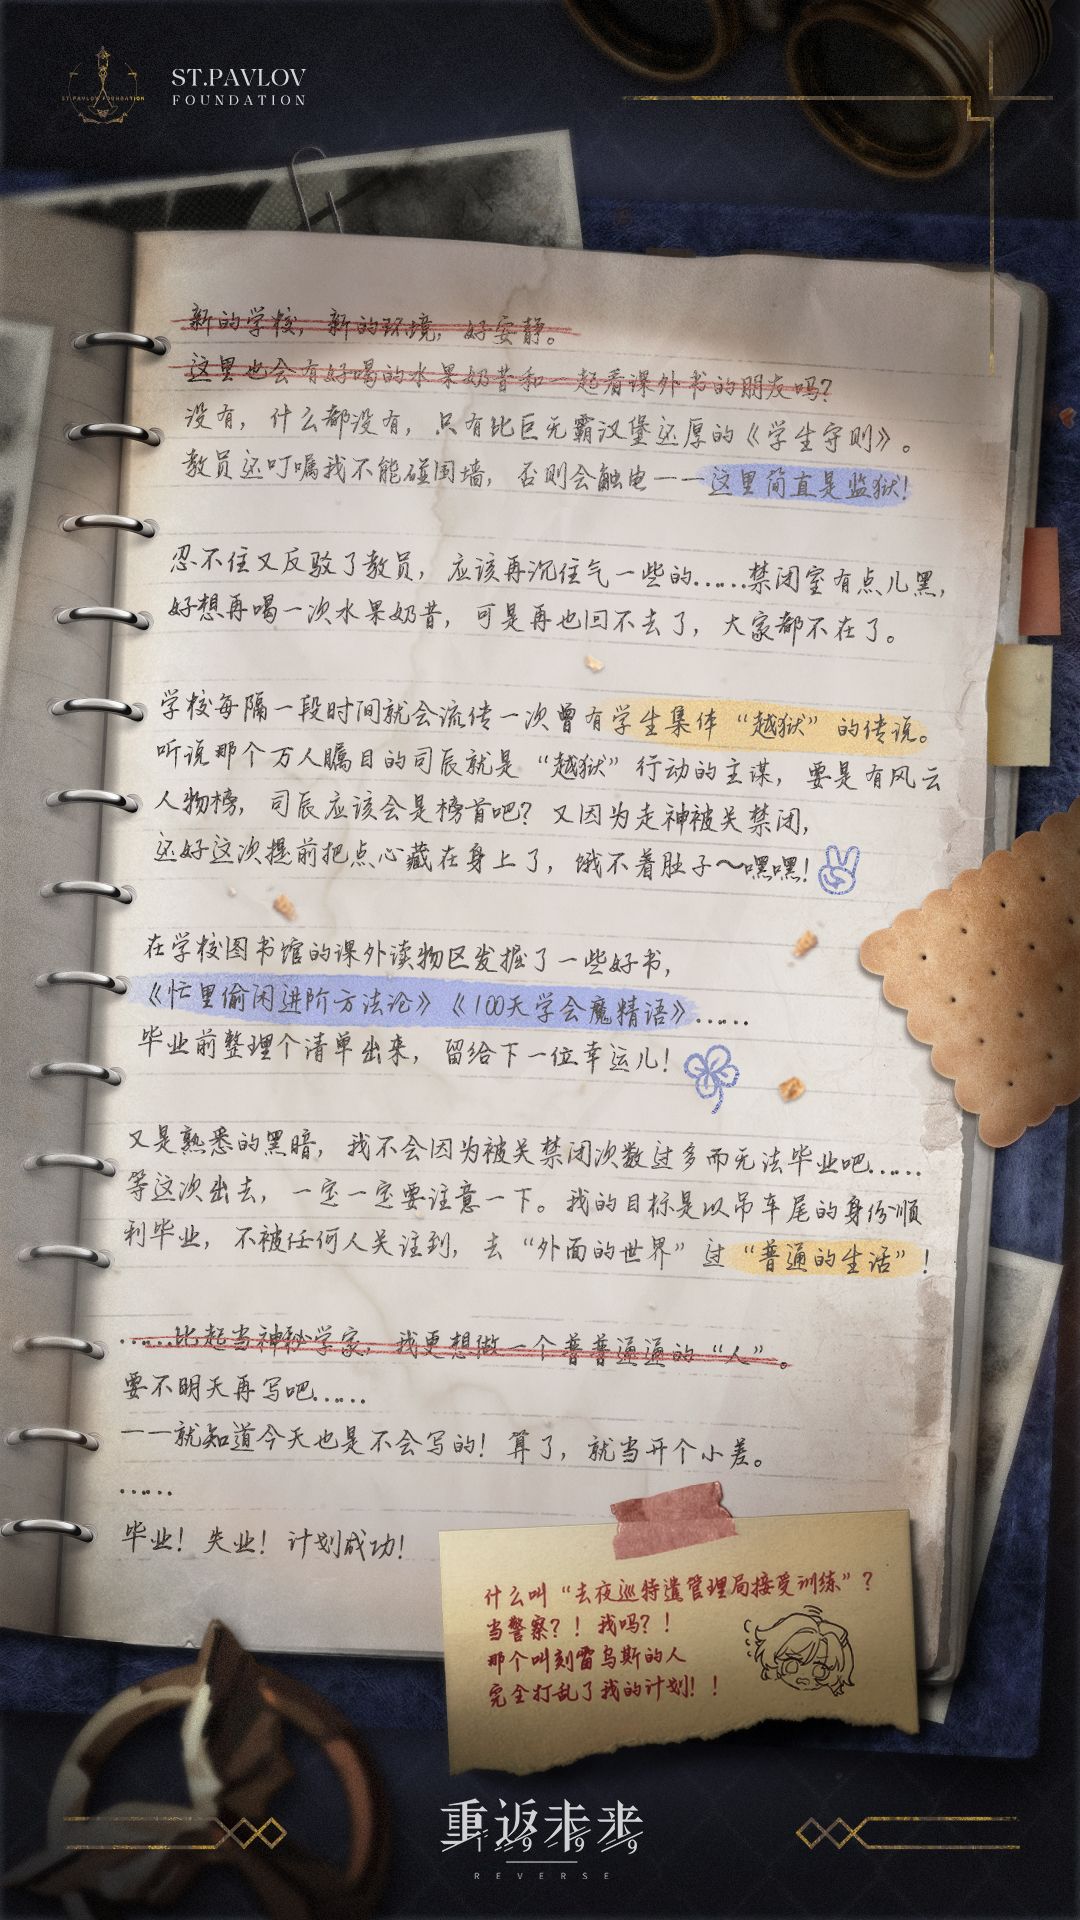 ST.PAVLOV FOUNDATION
ST.PAVLOV
FOUNDATION
新的学校，新的环境，好安静。
这里也会有好喝的水果奶昔和一起看课外书的朋友吗？
没有，什么都没有，只有比巨无霸汉堡还厚的《学生守则》。
教员还叮嘱我不能碰围墙，否则会触电——这里简直是监狱！
忍不住又反驳了教员，应该再沉住气一些的……禁闭室有点儿黑，
好想再喝一次水果奶昔，可是再也回不去了，大家都不在了。
学校每隔一段时间就会流传一次曾有学生集体“越狱”的传说。
听说那个万人瞩目的司辰就是“越狱”行动的主谋，要是有风云
人物榜，司辰应该会是榜首吧？又因为走神被关禁闭，
还好这次提前把点心藏在身上了，饿不着肚子～嘿嘿！
在学校图书馆的课外读物区发掘了一些好书，
《忙里偷闲进阶方法论》《100天学会魔精语》……
毕业前整理个清单出来，留给下一位幸运儿！
又是熟悉的黑暗，我不会因为被关禁闭次数过多而无法毕业吧……
等这次出去，一定一定要注意一下。我的目标是以吊车尾的身份顺
利毕业，不被任何人关注到，去“外面的世界”过“普通的生活”！
……比起当神秘学家，我更想做一个普普通通的“人”。
要不明天再写吧……
——就知道今天也是不会写的！算了，就当开个小差。
……
毕业！失业！计划成功！
什么叫“去夜巡特遣管理局接受训练”？
当警察？！我吗？！
那个叫刻雷乌斯的人
完全打乱了我的计划！！
重返未来
1999
REVERSE